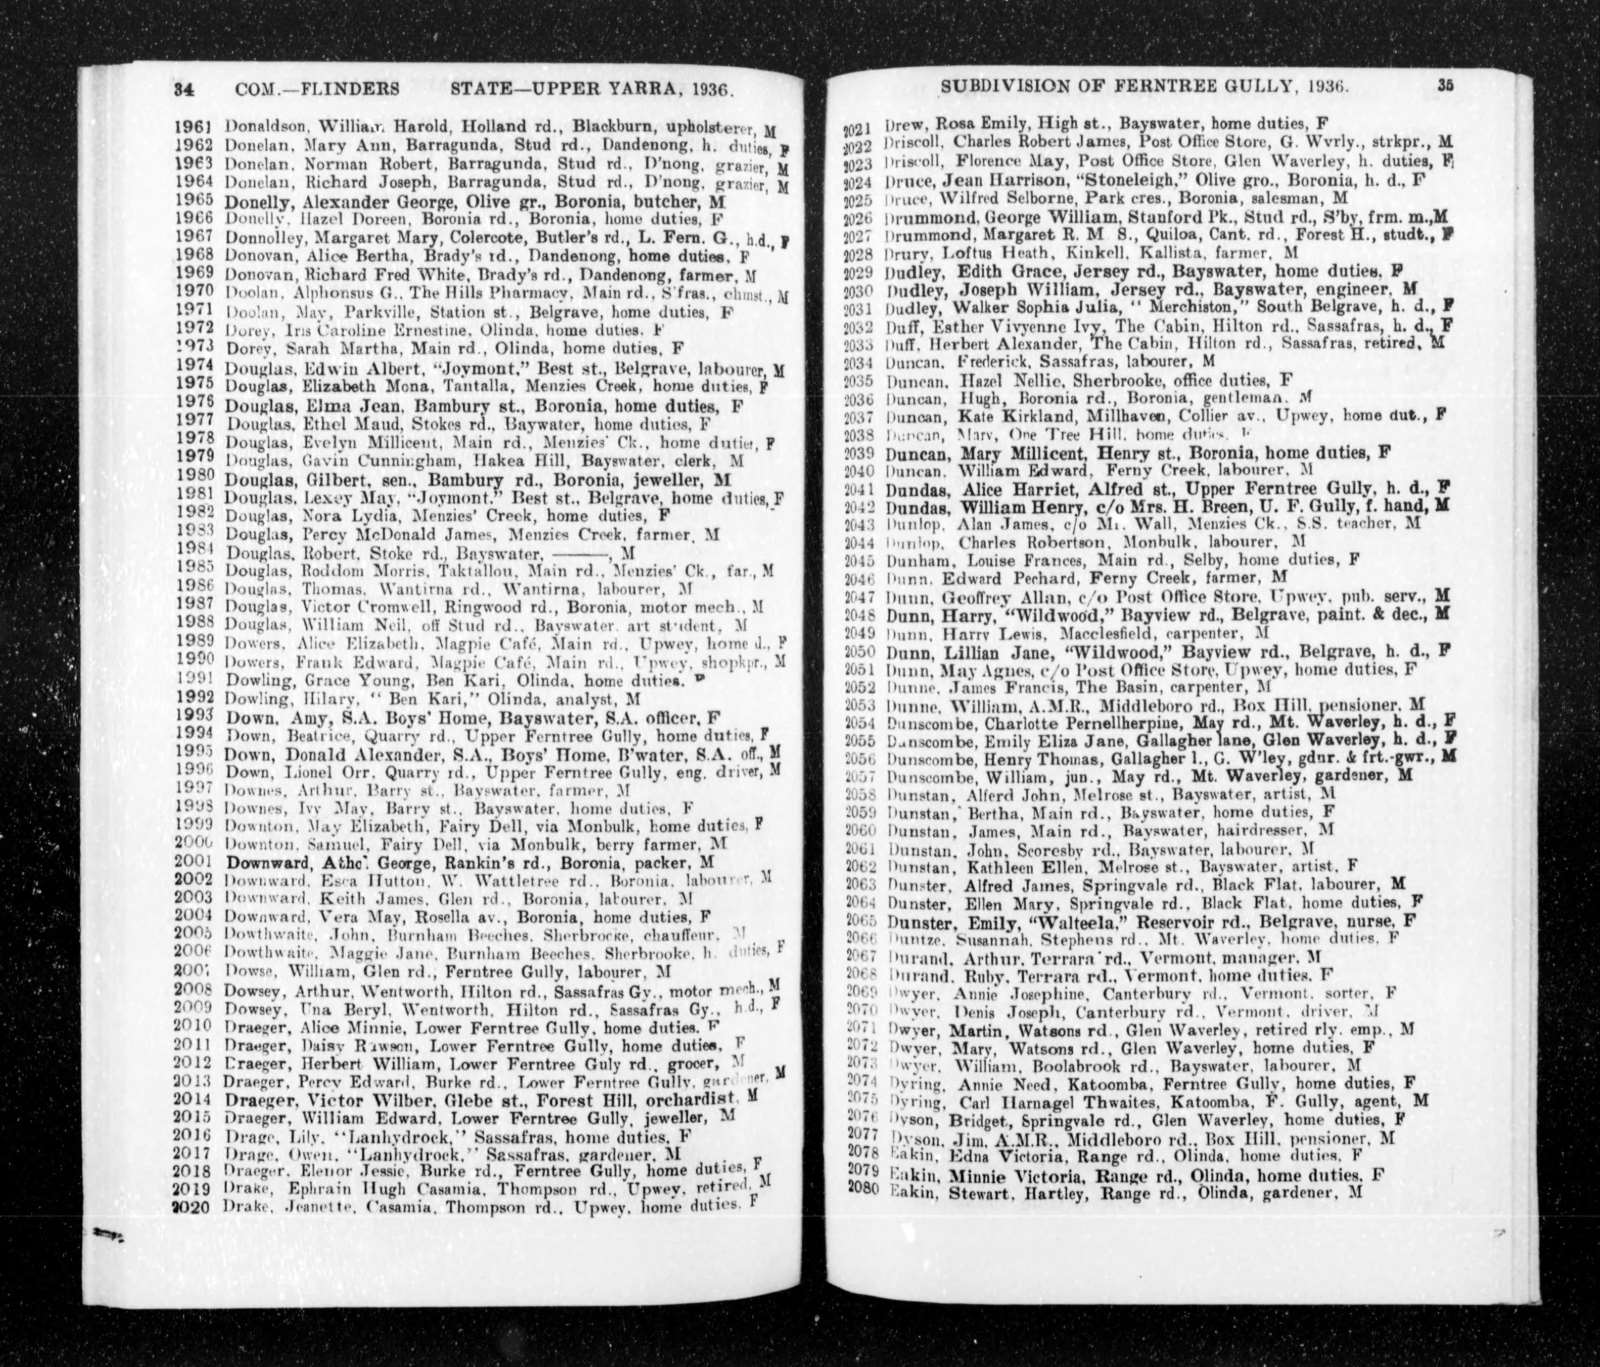 34 COM.—FLINDERS STATE—UPPER YARRA, 1936.
1961 Donaldson, William Harold, Holland rd., Blackburn, upholsterer, M
1962 Donelan, Mary Ann, Barragunda, Stud rd., Dandenong, h. duties, F
1963 Donelan, Norman Robert, Barragunda, Stud rd., D'nong, grazier, M
1964 Donelan, Richard Joseph, Barragunda, Stud rd., D'nong, grazier, M
1965 Donelly, Alexander George, Olive gr., Boronia, butcher, M
1966 Donelly, Hazel Doreen, Boronia rd., Boronia, home duties, F
1967 Donnolley, Margaret Mary, Colercote, Butler's rd., L. Fern. G., h.d., F
1968 Donovan, Alice Bertha, Brady's rd., Dandenong, home duties, F
1969 Donovan, Richard Fred White, Brady's rd., Dandenong, farmer, M
1970 Doolan, Alphonsus G., The Hills Pharmacy, Main rd., S'fras., chmst., M
1971 Doolan, May, Parkville, Station st., Belgrave, home duties, F
1972 Dorey, Iris Caroline Ernestine, Olinda, home duties, F
1973 Dorey, Sarah Martha, Main rd., Olinda, home duties, F
1974 Douglas, Edwin Albert, "Joymont," Best st., Belgrave, labourer, M
1975 Douglas, Elizabeth Mona, Tantalla, Menzies Creek, home duties, F
1976 Douglas, Elma Jean, Bambury st., Boronia, home duties, F
1977 Douglas, Ethel Maud, Stokes rd., Baywater, home duties, F
1978 Douglas, Evelyn Millicent, Main rd., Menzies' Ck., home duties, F
1979 Douglas, Gavin Cunningham, Hakea Hill, Bayswater, clerk, M
1980 Douglas, Gilbert, sen., Bambury rd., Boronia, jeweller, M
1981 Douglas, Lexey May, "Joymont," Best st., Belgrave, home duties, F
1982 Douglas, Nora Lydia, Menzies' Creek, home duties, F
1983 Douglas, Percy McDonald James, Menzies Creek, farmer, M
1984 Douglas, Robert, Stoke rd., Bayswater, ———, M
1985 Douglas, Roddom Morris, Taktallou, Main rd., Menzies' Ck., far., M
1986 Douglas, Thomas, Wantirna rd., Wantirna, labourer, M
1987 Douglas, Victor Cromwell, Ringwood rd., Boronia, motor mech., M
1988 Douglas, William Neil, off Stud rd., Bayswater, art student, M
1989 Dowers, Alice Elizabeth, Magpie Café, Main rd., Upwey, home d., F
1990 Dowers, Frank Edward, Magpie Café, Main rd., Upwey, shopkpr., M
1991 Dowling, Grace Young, Ben Kari, Olinda, home duties, F
1992 Dowling, Hilary, "Ben Kari," Olinda, analyst, M
1993 Down, Amy, S.A. Boys' Home, Bayswater, S.A. officer, F
1994 Down, Beatrice, Quarry rd., Upper Ferntree Gully, home duties, F
1995 Down, Donald Alexander, S.A., Boys' Home, B'water, S.A. off., M
1996 Down, Lionel Orr, Quarry rd., Upper Ferntree Gully, eng. driver, M
1997 Downes, Arthur, Barry st., Bayswater, farmer, M
1998 Downes, Ivy May, Barry st., Bayswater, home duties, F
1999 Downton, May Elizabeth, Fairy Dell, via Monbulk, home duties, F
2000 Downton, Samuel, Fairy Dell, via Monbulk, berry farmer, M
2001 Downward, George, Rankin's rd., Boronia, packer, M
2002 Downward, Esca Hutton, W. Wattletree rd., Boronia, labourer, M
2003 Downward, Keith James, Glen rd., Boronia, labourer, M
2004 Downward, Vera May, Rosella av., Boronia, home duties, F
2005 Dowthwaite, John, Burnham Beeches, Sherbrooke, chauffeur, M
2006 Dowthwaite, Maggie Jane, Burnham Beeches, Sherbrooke, h. duties, F
2007 Dowse, William, Glen rd., Ferntree Gully, labourer, M
2008 Dowsey, Arthur, Wentworth, Hilton rd., Sassafras Gy., motor mech., M
2009 Dowsey, Una Beryl, Wentworth, Hilton rd., Sassafras Gy., h.d., F
2010 Draeger, Alice Minnie, Lower Ferntree Gully, home duties, F
2011 Draeger, Daisy Rawson, Lower Ferntree Gully, home duties, F
2012 Draeger, Herbert William, Lower Ferntree Guly rd., grocer, M
2013 Draeger, Percy Edward, Burke rd., Lower Ferntree Gully, gardener, M
2014 Draeger, Victor Wilber, Glebe st., Forest Hill, orchardist, M
2015 Draeger, William Edward, Lower Ferntree Gully, jeweller, M
2016 Drage, Lily, "Lanhydrock," Sassafras, home duties, F
2017 Drage, Owen, "Lanhydrock," Sassafras, gardener, M
2018 Draeger, Elenor Jessie, Burke rd., Ferntree Gully, home duties, F
2019 Drake, Ephrain Hugh Casamia, Thompson rd., Upwey, retired, M
2020 Drake, Jeanette, Casamia, Thompson rd., Upwey, home duties, F
SUBDIVISION OF FERNTREE GULLY, 1936. 35
2021 Drew, Rosa Emily, High st., Bayswater, home duties, F
2022 Driscoll, Charles Robert James, Post Office Store, G. Wvrly., strkpr., M
2023 Driscoll, Florence May, Post Office Store, Glen Waverley, h. duties, F
2024 Druce, Jean Harrison, "Stoneleigh," Olive gro., Boronia, h. d., F
2025 Druce, Wilfred Selborne, Park cres., Boronia, salesman, M
2026 Drummond, George William, Stanford Pk., Stud rd., S'by, frm. m., M
2027 Drummond, Margaret R. M S., Quiloa, Cant. rd., Forest H., studt., F
2028 Drury, Loftus Heath, Kinkell, Kallista, farmer, M
2029 Dudley, Edith Grace, Jersey rd., Bayswater, home duties, F
2030 Dudley, Joseph William, Jersey rd., Bayswater, engineer, M
2031 Dudley, Walker Sophia Julia, "Merchiston," South Belgrave, h. d., F
2032 Duff, Esther Vivyenne Ivy, The Cabin, Hilton rd., Sassafras, h. d., F
2033 Duff, Herbert Alexander, The Cabin, Hilton rd., Sassafras, retired, M
2034 Duncan, Frederick, Sassafras, labourer, M
2035 Duncan, Hazel Nellie, Sherbrooke, office duties, F
2036 Duncan, Hugh, Boronia rd., Boronia, gentleman, M
2037 Duncan, Kate Kirkland, Millhaven, Collier av., Upwey, home dut., F
2038 Duncan, Mary, One Tree Hill, home duties, F
2039 Duncan, Mary Millicent, Henry st., Boronia, home duties, F
2040 Duncan, William Edward, Ferny Creek, labourer, M
2041 Dundas, Alice Harriet, Alfred st., Upper Ferntree Gully, h. d., F
2042 Dundas, William Henry, c/o Mrs. H. Breen, U. F. Gully, f. hand, M
2043 Dunlop, Alan James, c/o Mr. Wall, Menzies Ck., S.S. teacher, M
2044 Dunlop, Charles Robertson, Monbulk, labourer, M
2045 Dunham, Louise Frances, Main rd., Selby, home duties, F
2046 Dunn, Edward Pechard, Ferny Creek, farmer, M
2047 Dunn, Geoffrey Allan, c/o Post Office Store, Upwey, pub. serv., M
2048 Dunn, Harry, "Wildwood," Bayview rd., Belgrave, paint. & dec., M
2049 Dunn, Harry Lewis, Macclesfield, carpenter, M
2050 Dunn, Lillian Jane, "Wildwood," Bayview rd., Belgrave, h. d., F
2051 Dunn, May Agnes, c/o Post Office Store, Upwey, home duties, F
2052 Dunne, James Francis, The Basin, carpenter, M
2053 Dunne, William, A.M.R., Middleboro rd., Box Hill, pensioner, M
2054 Dunscombe, Charlotte Pernellherpine, May rd., Mt. Waverley, h. d., F
2055 Dunscombe, Emily Eliza Jane, Gallagher lane, Glen Waverley, h. d., F
2056 Dunscombe, Henry Thomas, Gallagher l., G. W'ley, gdnr. & frt.-gwr., M
2057 Dunscombe, William, jun., May rd., Mt. Waverley, gardener, M
2058 Dunstan, Alferd John, Melrose st., Bayswater, artist, M
2059 Dunstan, Bertha, Main rd., Bayswater, home duties, F
2060 Dunstan, James, Main rd., Bayswater, hairdresser, M
2061 Dunstan, John, Scoresby rd., Bayswater, labourer, M
2062 Dunstan, Kathleen Ellen, Melrose st., Bayswater, artist, F
2063 Dunster, Alfred James, Springvale rd., Black Flat, labourer, M
2064 Dunster, Ellen Mary, Springvale rd., Black Flat, home duties, F
2065 Dunster, Emily, "Walteela," Reservoir rd., Belgrave, nurse, F
2066 Duntze, Susannah, Stephens rd., Mt. Waverley, home duties, F
2067 Durand, Arthur, Terrara rd., Vermont, manager, M
2068 Durand, Ruby, Terrara rd., Vermont, home duties, F
2069 Dwyer, Annie Josephine, Canterbury rd., Vermont, sorter, F
2070 Dwyer, Denis Joseph, Canterbury rd., Vermont, driver, M
2071 Dwyer, Martin, Watsons rd., Glen Waverley, retired rly. emp., M
2072 Dwyer, Mary, Watsons rd., Glen Waverley, home duties, F
2073 Dwyer, William, Boolabrook rd., Bayswater, labourer, M
2074 Dyring, Annie Need, Katoomba, Ferntree Gully, home duties, F
2075 Dyring, Carl Harnagel Thwaites, Katoomba, F. Gully, agent, M
2076 Dyson, Bridget, Springvale rd., Glen Waverley, home duties, F
2077 Dyson, Jim, A.M.R., Middleboro rd., Box Hill, pensioner, M
2078 Eakin, Edna Victoria, Range rd., Olinda, home duties, F
2079 Eakin, Minnie Victoria, Range rd., Olinda, home duties, F
2080 Eakin, Stewart, Hartley, Range rd., Olinda, gardener, M